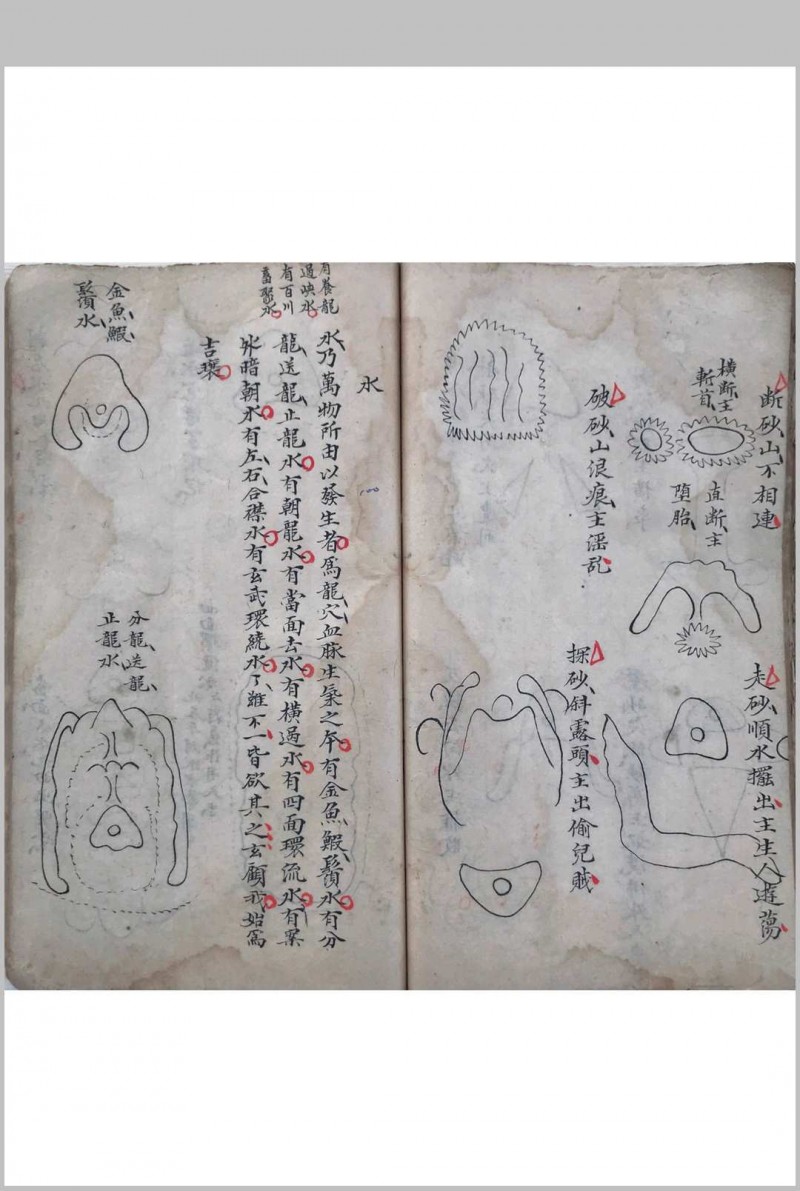 断砂山不相連
横断主
斬首
直断主
堕胎
走砂順水擺出主生人遊蕩
破砂山浪痕主淫乱
探砂斜露頭主出偷兒贼
水
100
有養龍
過峽水
有百川
蓄聚水
水乃萬物所由以發生者爲龍穴血脉生氣之本有金魚鰕鬚水有分
龍送龍止龍水有朝龍水有當面去水有橫過水有四面環流水有案
外暗朝水有左右合襟水有玄武環繞水了雖不一皆欲其之玄顧我始爲
吉
金魚鰕
鬚水
分龍送龍
止龍水